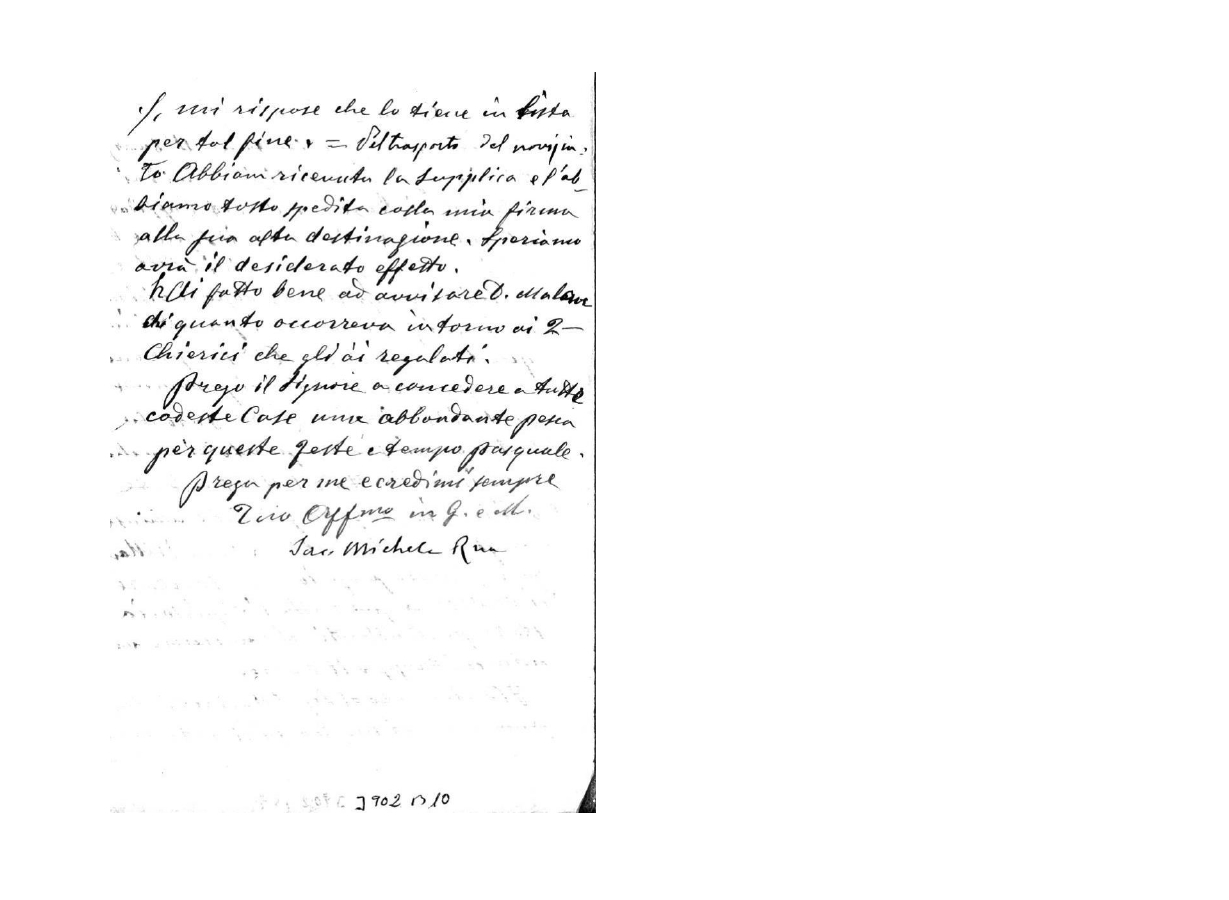 S, mi rispose che lo tiene in lista
per tal fine. = Pel trasporto del novizia-
to Abbiam ricevuta la supplica e l'ab-
biamo tosto spedita colla mia firma
alla sua alta destinazione. Speriamo
avrà il desiderato effetto.
Hai fatto bene ad avvisare D. Malan
di quanto occorreva intorno ai 2
Chierici che gli ài regalati.
Prego il Signore a concedere a tutte
codeste Case una abbondante pesca
per queste feste e tempo pasquale.
Prega per me e credimi sempre
Tuo Affmo in G. e M.
Sac. Michele Rua
3902 B 10